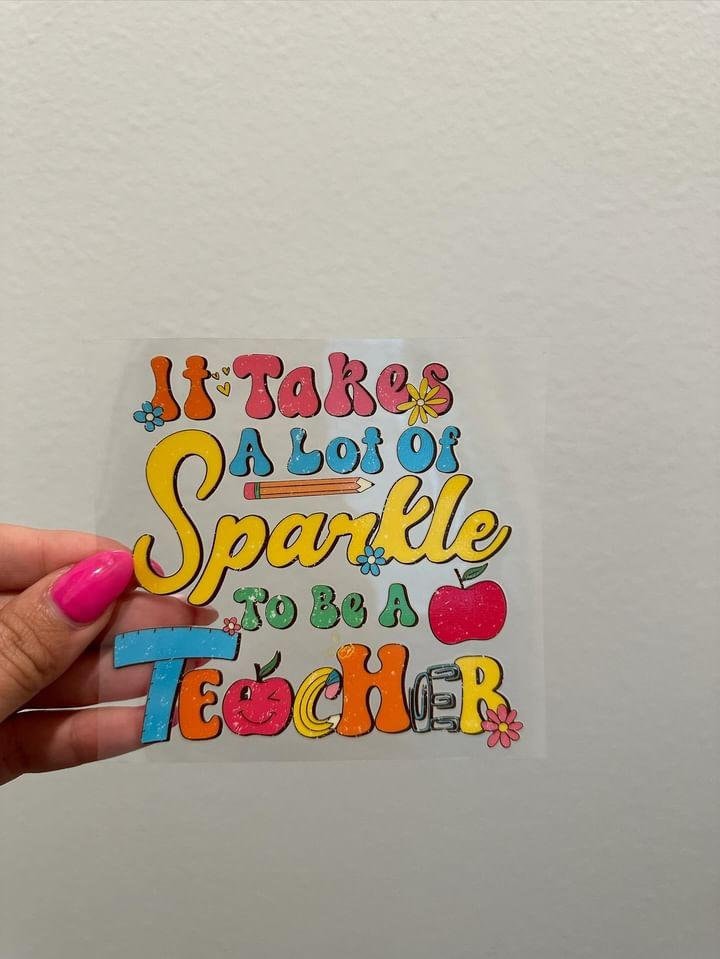 It Takes
A Lot Of
Sparkle
To Be A
TEACHER